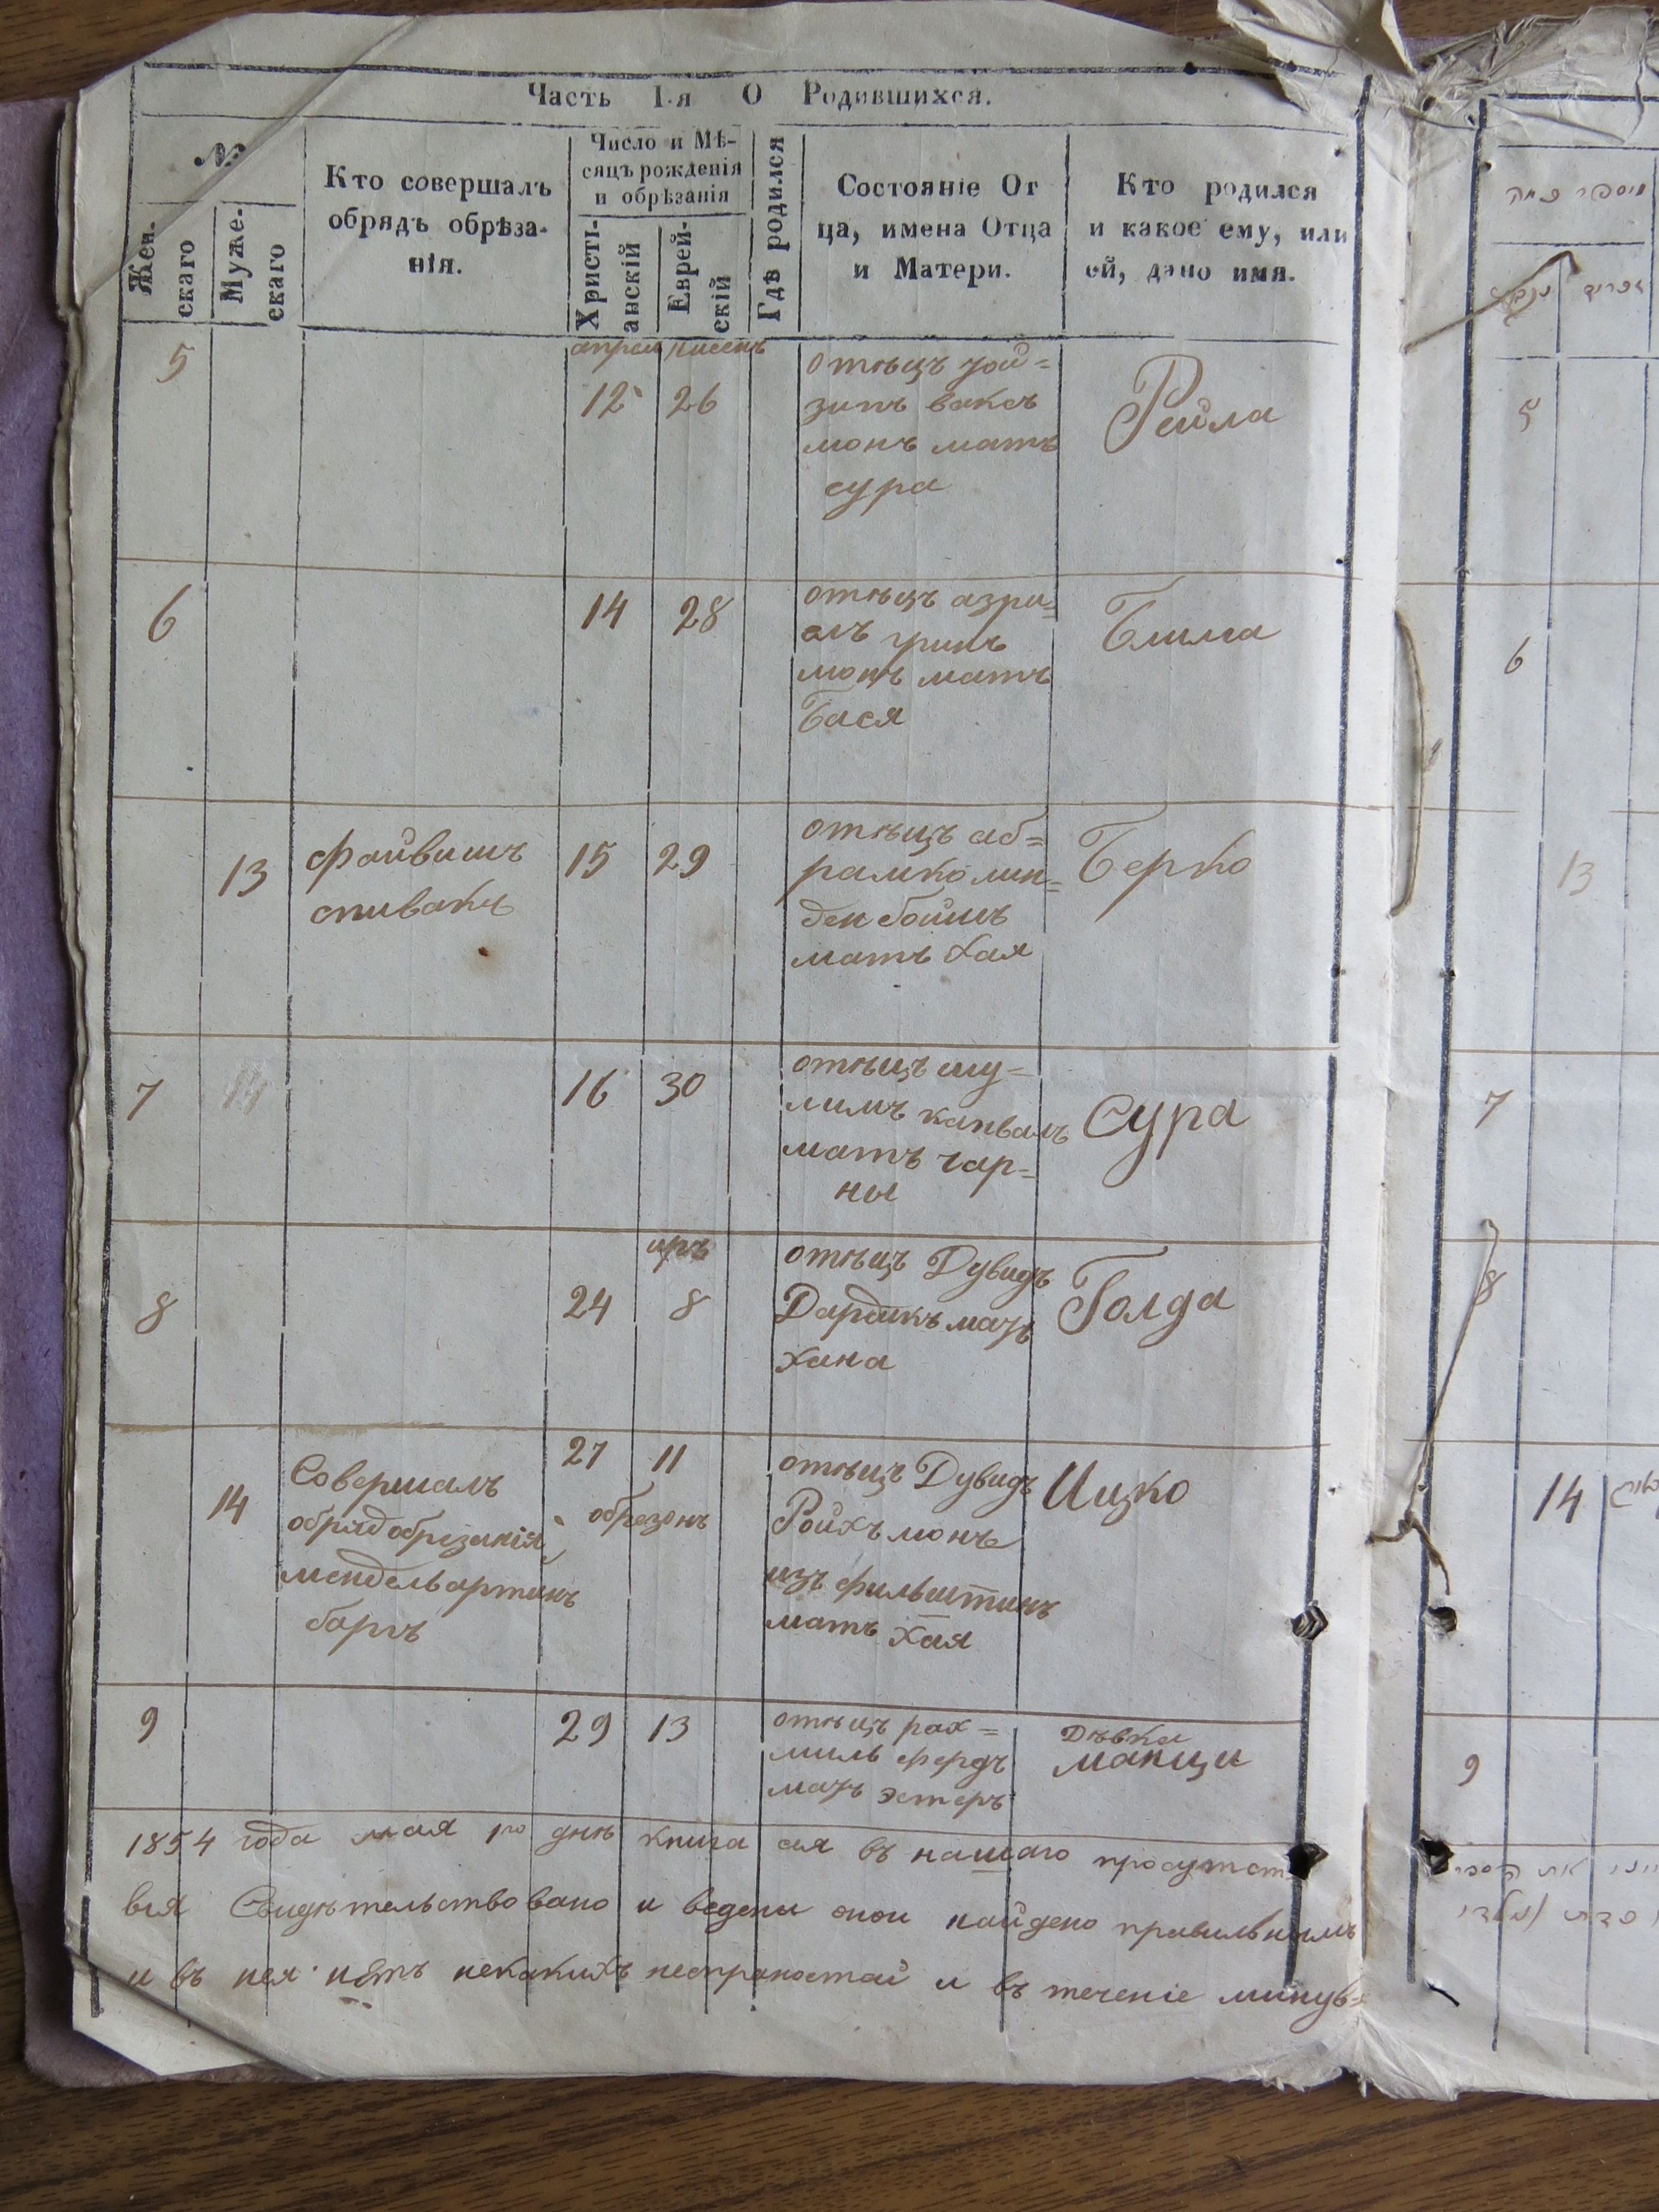 Часть I-я О Родившихся.
№
Жен-
скаго
Муже-
скаго
Кто совершалъ
обрядъ обрѣза-
нія.
Число и Мѣ-
сяцъ рожденія
и обрѣзанія
Христі-
анскій
Еврей-
скій
Гдѣ родился
Состояніе От
ца, имена Отца
и Матери.
Кто родился
и какое ему, или
ей, дано имя.
5
12 26
отѣцъ
монъ мать
сура
Рейла
6
14 28
отѣцъ азри=
монъ мать
Бася
Блима
13
файвишъ
спивакъ
15 29
отѣцъ аб=
рамко лин=
денбоймъ
мать хая
Берко
7 14
16 30
отѣцъ шу=
лимъ
мать чар=
ны
Сура
иръ
8
24 8
отѣцъ Дувидъ
Дардикъ мать
хана
Голда
14
Совершалъ
обряд обрезанія
мендель
27 11
обрезонъ
отѣцъ Дувидъ
Ройхъмонъ
изъ
мать Хая
Ицко
9
29 13
отѣцъ рах=
миль фердъ
мать эстеръ
Дѣвка
манци
1854 года мая 1го днѣ книга сія въ нашаго присутст
вія Свидѣтельствовано и ведены оной найдено правильнымъ
и въ нея нѣтъ некакихъ и въ теченіе минув=
5
6
13
7
8
14
9